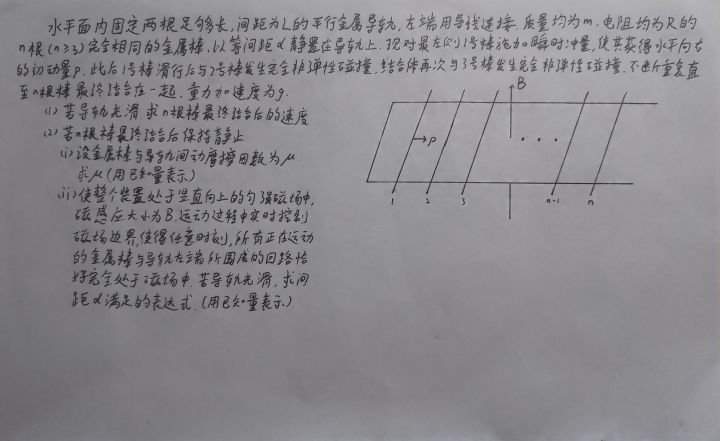 水平面内固定两根足够长,间距为L的平行金属导轨,左端用导线连接.质量均为m.电阻均为R的
n根(n≥3)完全相同的金属棒,以等间距d静置在导轨上.现对最左侧1号棒施加瞬时冲量,使其获得水平向右
的初动量p.此后1号棒滑行后与2号棒发生完全非弹性碰撞,结合体再次与3号棒发生完全非弹性碰撞.不断重复直
至n根棒最终结合在一起.重力加速度为g.
(1)若导轨光滑.求n根棒最终结合后的速度
(2)若n根棒最终结合后保持静止
(i)设金属棒与导轨间动摩擦因数为μ.
求μ(用已知量表示)
(ii)使整个装置处于竖直向上的匀强磁场中,
磁感应大小为B.运动过程中实时控制
磁场边界,使得任意时刻,所有正在运动
的金属棒与导轨左端所围成的回路恰
好完全处于磁场中.若导轨光滑,求间
距d满足的表达式.(用已知量表示)
B
p
1 2 3 n-1 n